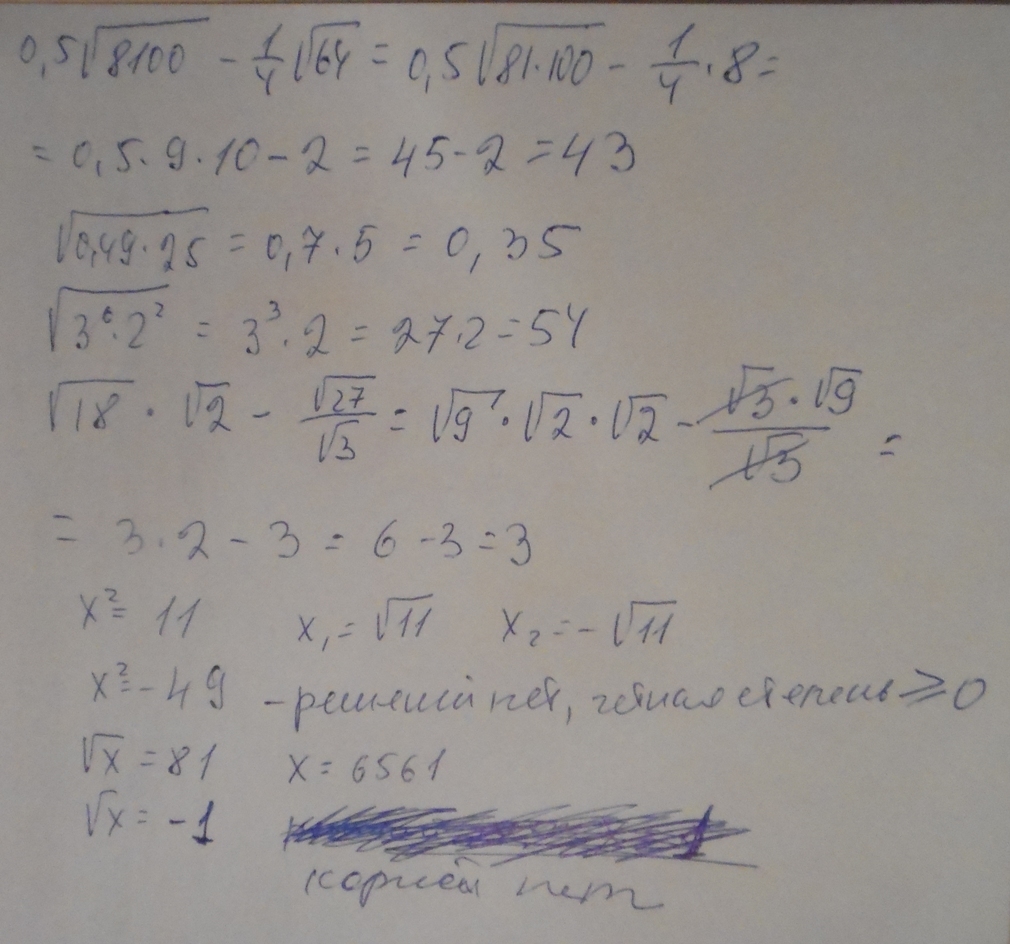 0,5√8100 - 1/4 √64 = 0,5√81·100 - 1/4 · 8 =
= 0,5·9·10 - 2 = 45 - 2 = 43
√0,49·25 = 0,7·5 = 0,35
√3⁶·2² = 3³·2 = 27·2 = 54
√18 · √2 - √27/√3 = √9 · √2 · √2 - √3·√9/√3 =
= 3·2 - 3 = 6 - 3 = 3
x² = 11 x₁ = √11 x₂ = -√11
x² = -49 - решений нет, четная степень ≥ 0
√x = 81 x = 6561
√x = -1
корней нет